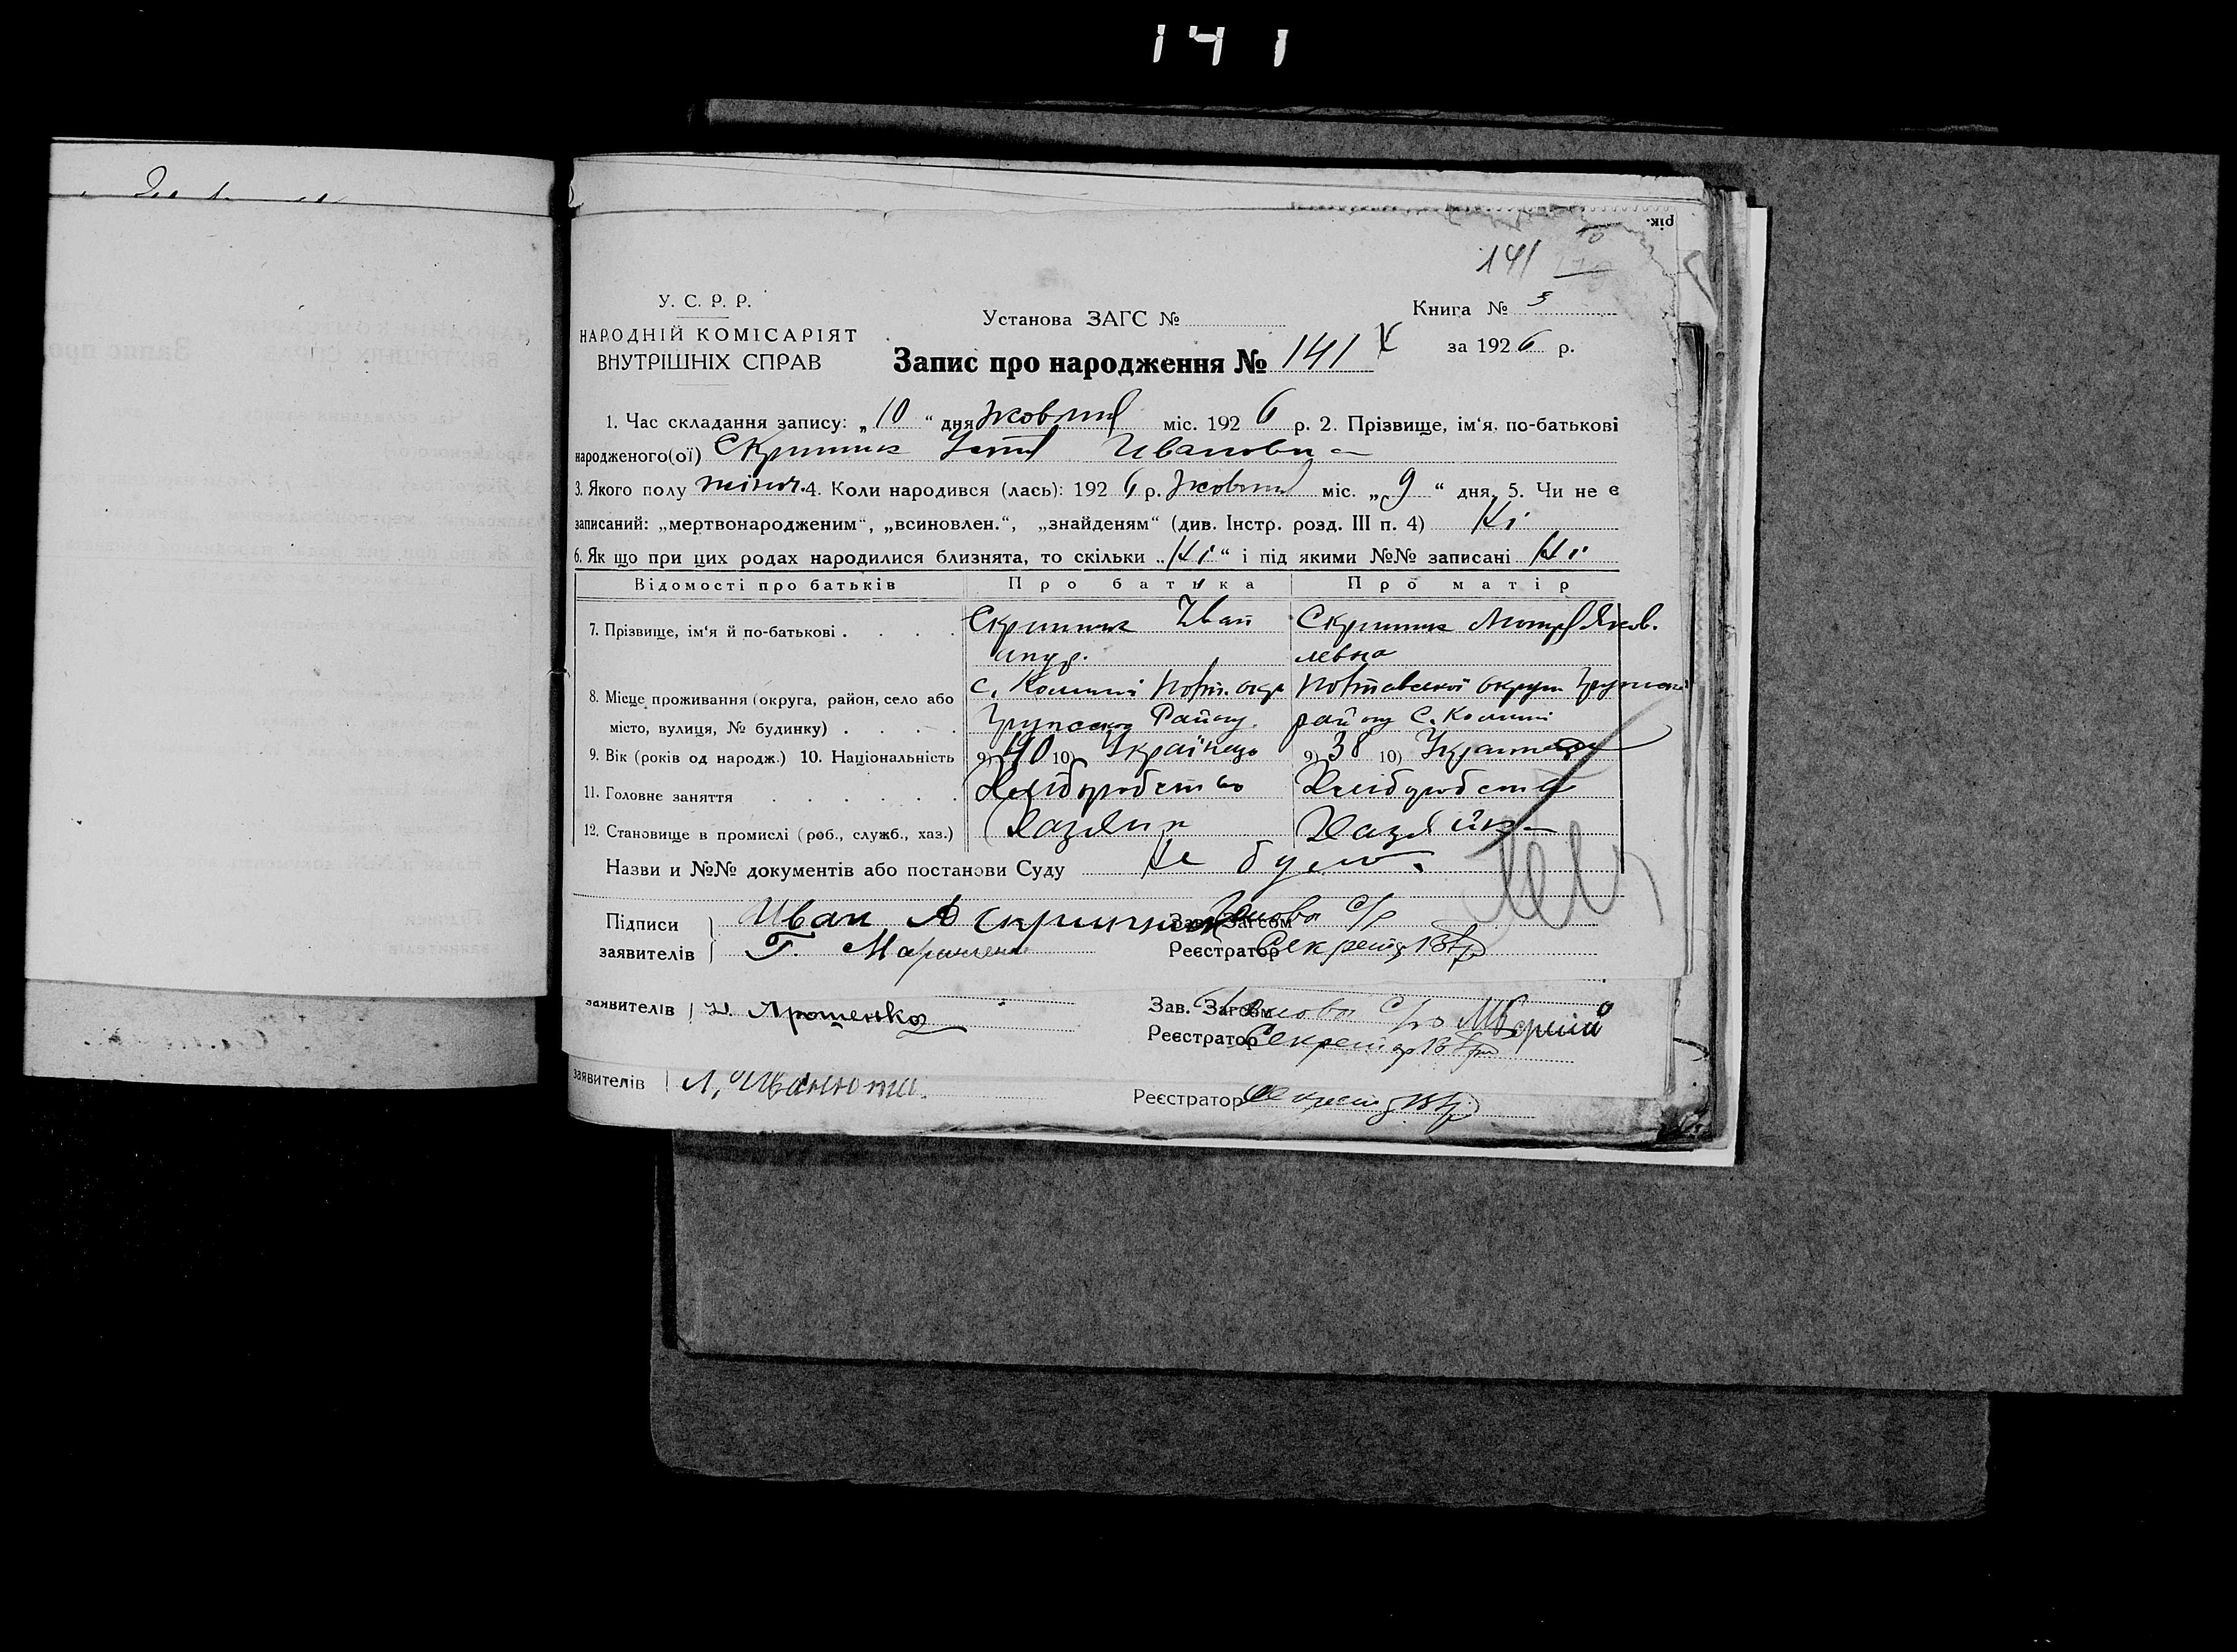 141
рік.
141
У. С. Р. Р.
НАРОДНІЙ КОМІСАРІЯТ
ВНУТРІШНІХ СПРАВ
Установа ЗАГС №
Книга № 3
за 1926 р.
Запис про народження № 141
1. Час складання запису: „10“ дня жовтня міс. 1926 р. 2. Прізвище, ім‘я, по-батькові
народженого(ої) Скрипник Ивановна
3. Якого полу жіноч. 4. Коли народився (лась): 1926 р. жовтня міс. „9“ дня. 5. Чи не є
записаний: „мертвонародженим“, „всиновлен.“, „знайденям“ (див. Інстр. розд. III п. 4) Ні
6. Як що при цих родах народилися близнята, то скільки „Ні“ і під якими №№ записані Ні
Відомості про батьків Про батька Про матір
7. Прізвище, ім‘я й по-батькові . . . . Скрипник Иван Скрипник Мотря Яков.
левна
8. Місце проживання (округа, район, село або с. Полт. окр Полтавської округи
місто, вулиця, № будинку) . . . . Району. району С.
9. Вік (років од народж.) 10. Національність 9) 40 10) Українець 9) 38 10) Українка
11. Головне заняття . . . . . . Хліборобство Хліборобство
12. Становище в промислі (роб., служб., хаз.) Хазяїн Хазяйка
Назви и №№ документів або постанови Суду Не було.
Підписи Иван А Скрипник Зав. Загсом Голова С/р
заявителів Г. Реєстратор Секретар
заявителів Д. Ярошенко Зав. Загсом Голова С/р
Реєстратор Секретар
заявителів Л. Иванюта. Реєстратор Секретар